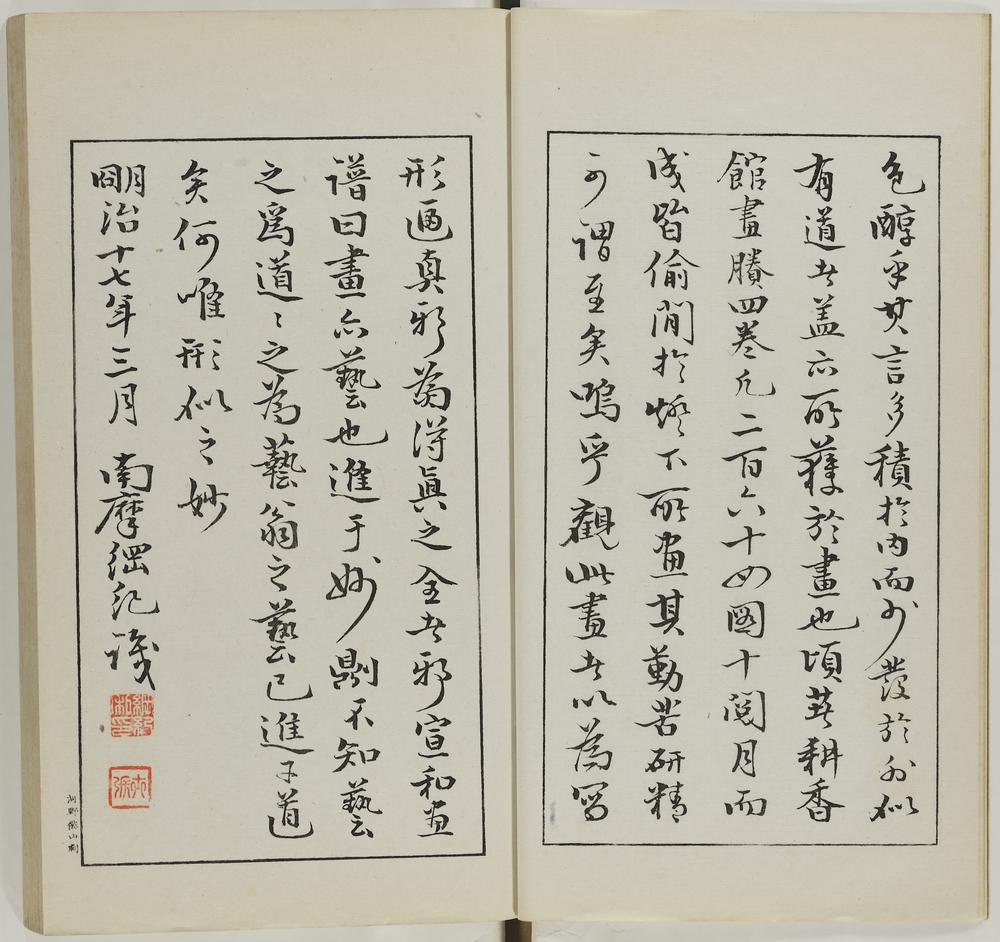 色醇乎其言多積於内而少發於外似
有道者蓋亦所獲於畫也頃著耕香
館畫賸四巻凡二百六十四圖十閲月而
成皆偷閒於燈下所畫其勤苦研精
可謂至矣嗚乎觀此畫者以為寫
形逼真邪為得眞之全者邪宣和畫
譜曰畫亦藝也進于妙則不知藝
之爲道〻之為藝翁之藝已進于道
矣何唯形似之妙
明治十七年三月 南摩綱紀識
綱紀私印